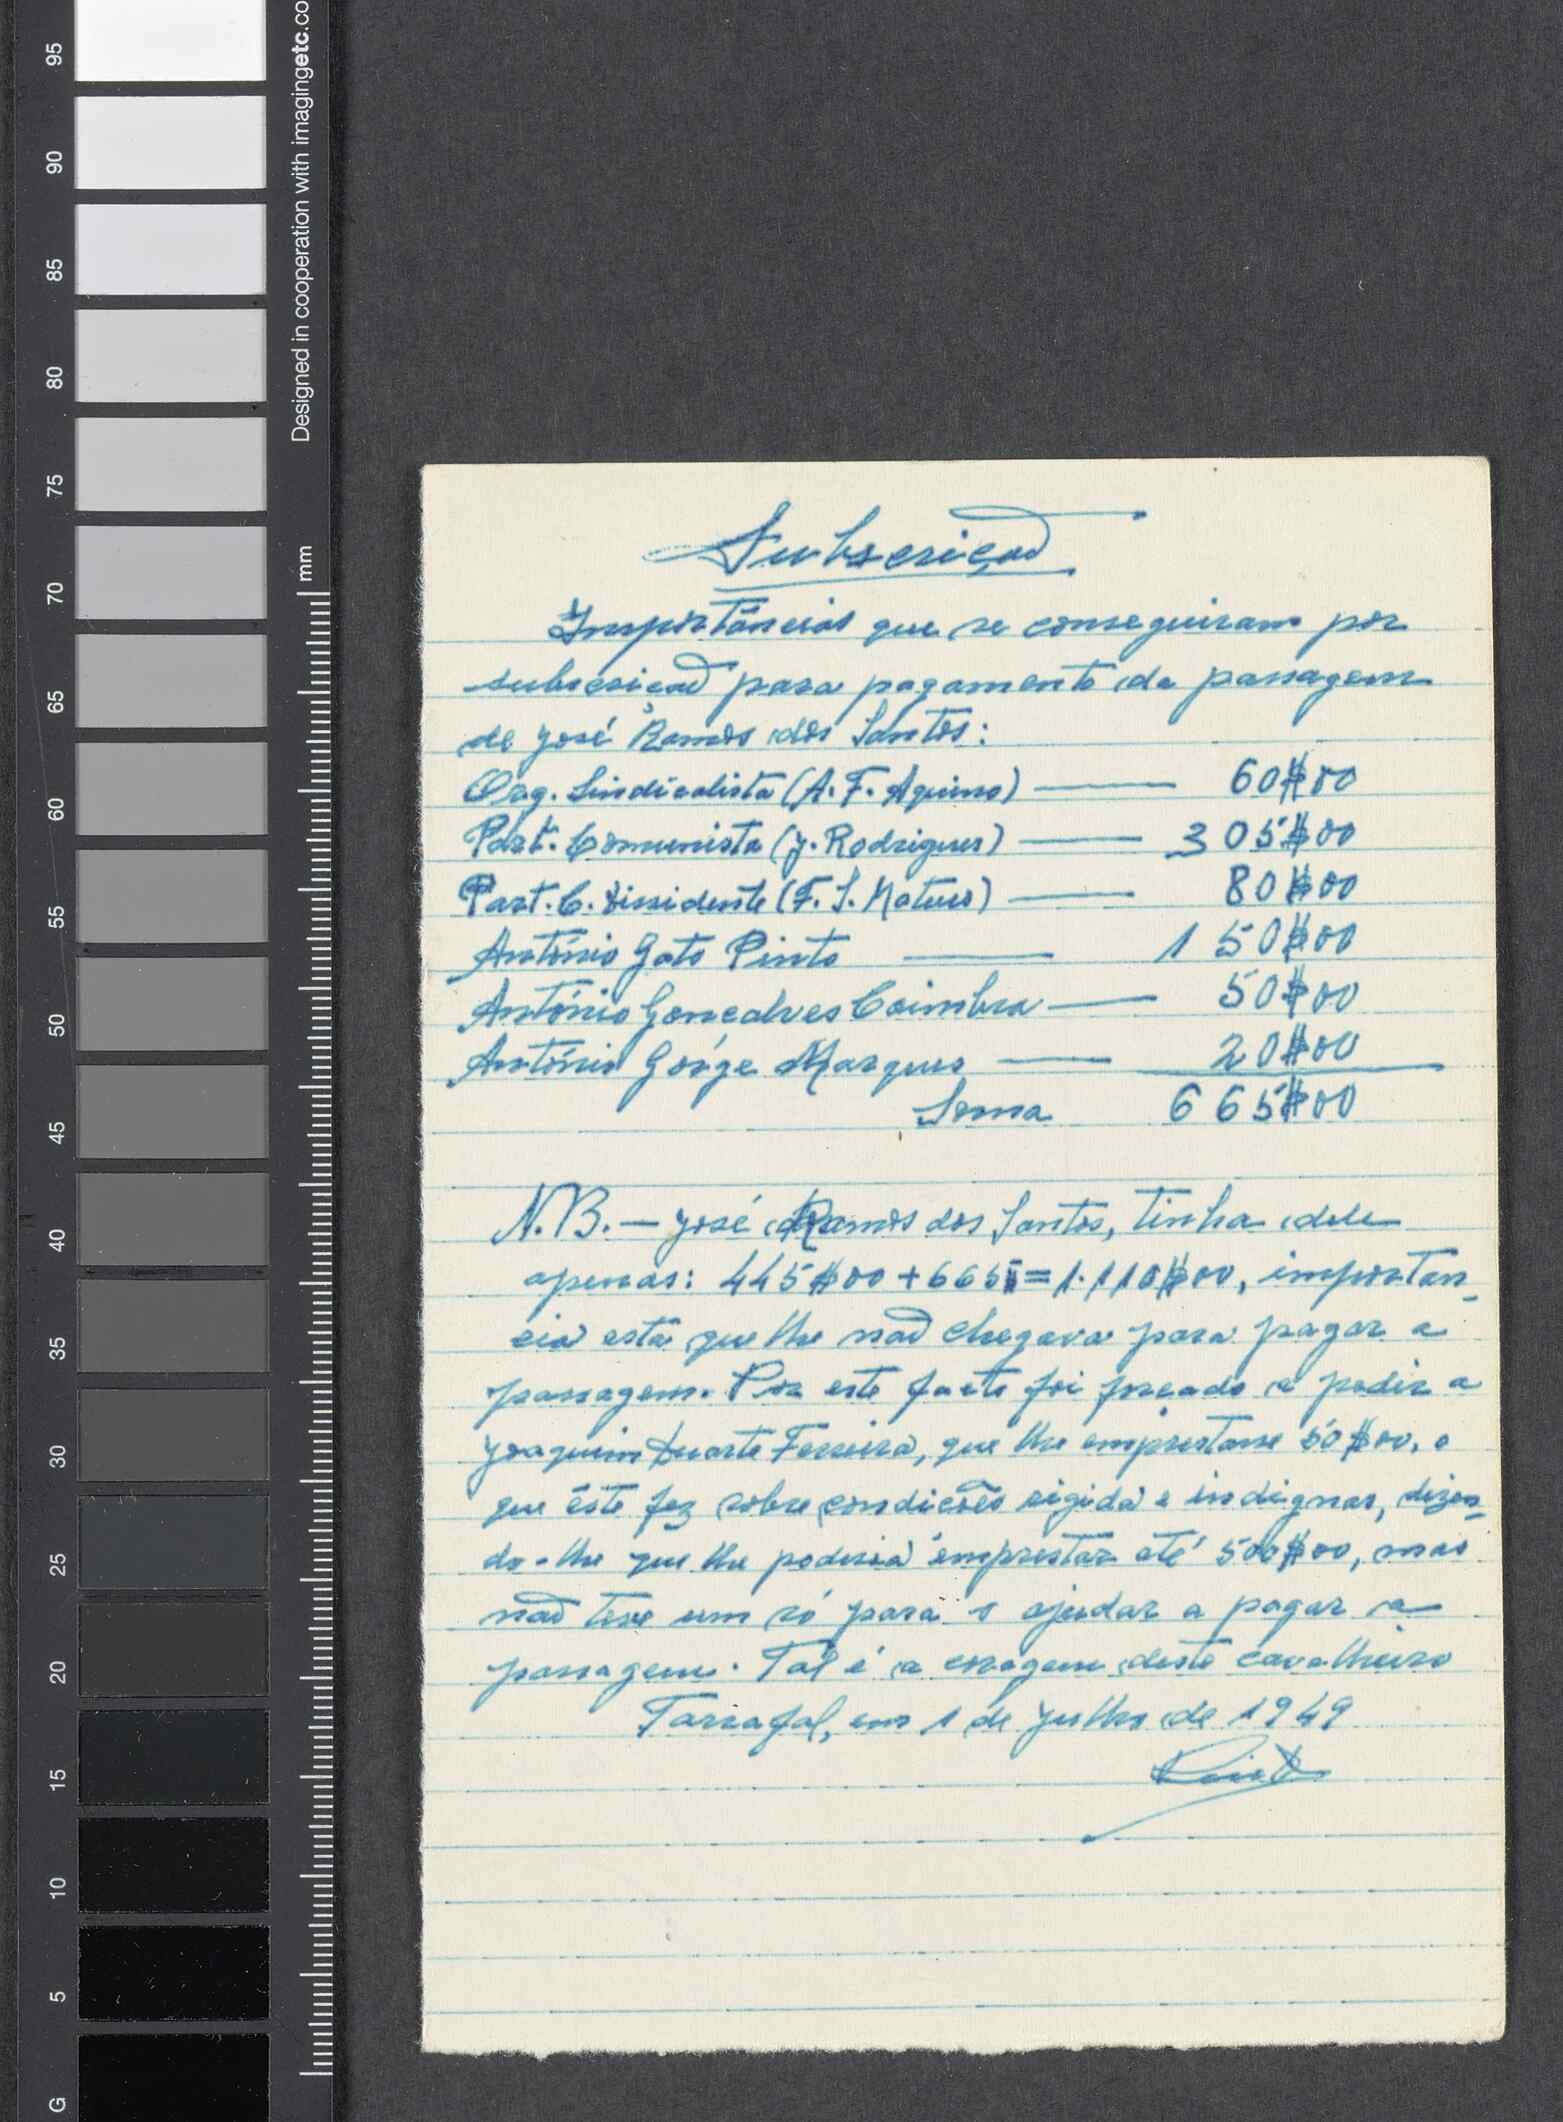 95
90
85
80
75
70
65
60
55
50
45
40
35
30
25
20
15
10
5
G
Designed in cooperation with imagingetc.co
mm
Subscrição
Importâncias que se conseguiram por
subscrição para pagamento da passagem
de José Ramos dos Santos:
Org. Sindicalista (A. F. Aquino) — 60$00
Part. Comunista (J. Rodrigues) — 305$00
Part. C. Dissidente (F. S. Mateus) — 80$00
António Gato Pinto — 150$00
António Gonçalves Coimbra — 50$00
António Gorge Marques — 20$00
Soma 665$00
N.B. — José Ramos dos Santos, tinha dele
apenas: 445$00 + 665$ = 1.110$00, importan-
cia está que lhe não chegava para pagar a
passagem. Por este facto foi forçado a pedir a
Joaquim Duarte Ferreira, que lhe emprestasse 50$00, o
que êste fez sobre condições rigida e indignas, dizen-
do-lhe que lhe poderia emprestar até 500$00, mas
não teve um só para o ajudar a pagar a
passagem. Tal é a coragem deste cavalheiro
Tarrafal, em 1 de Julho de 1949